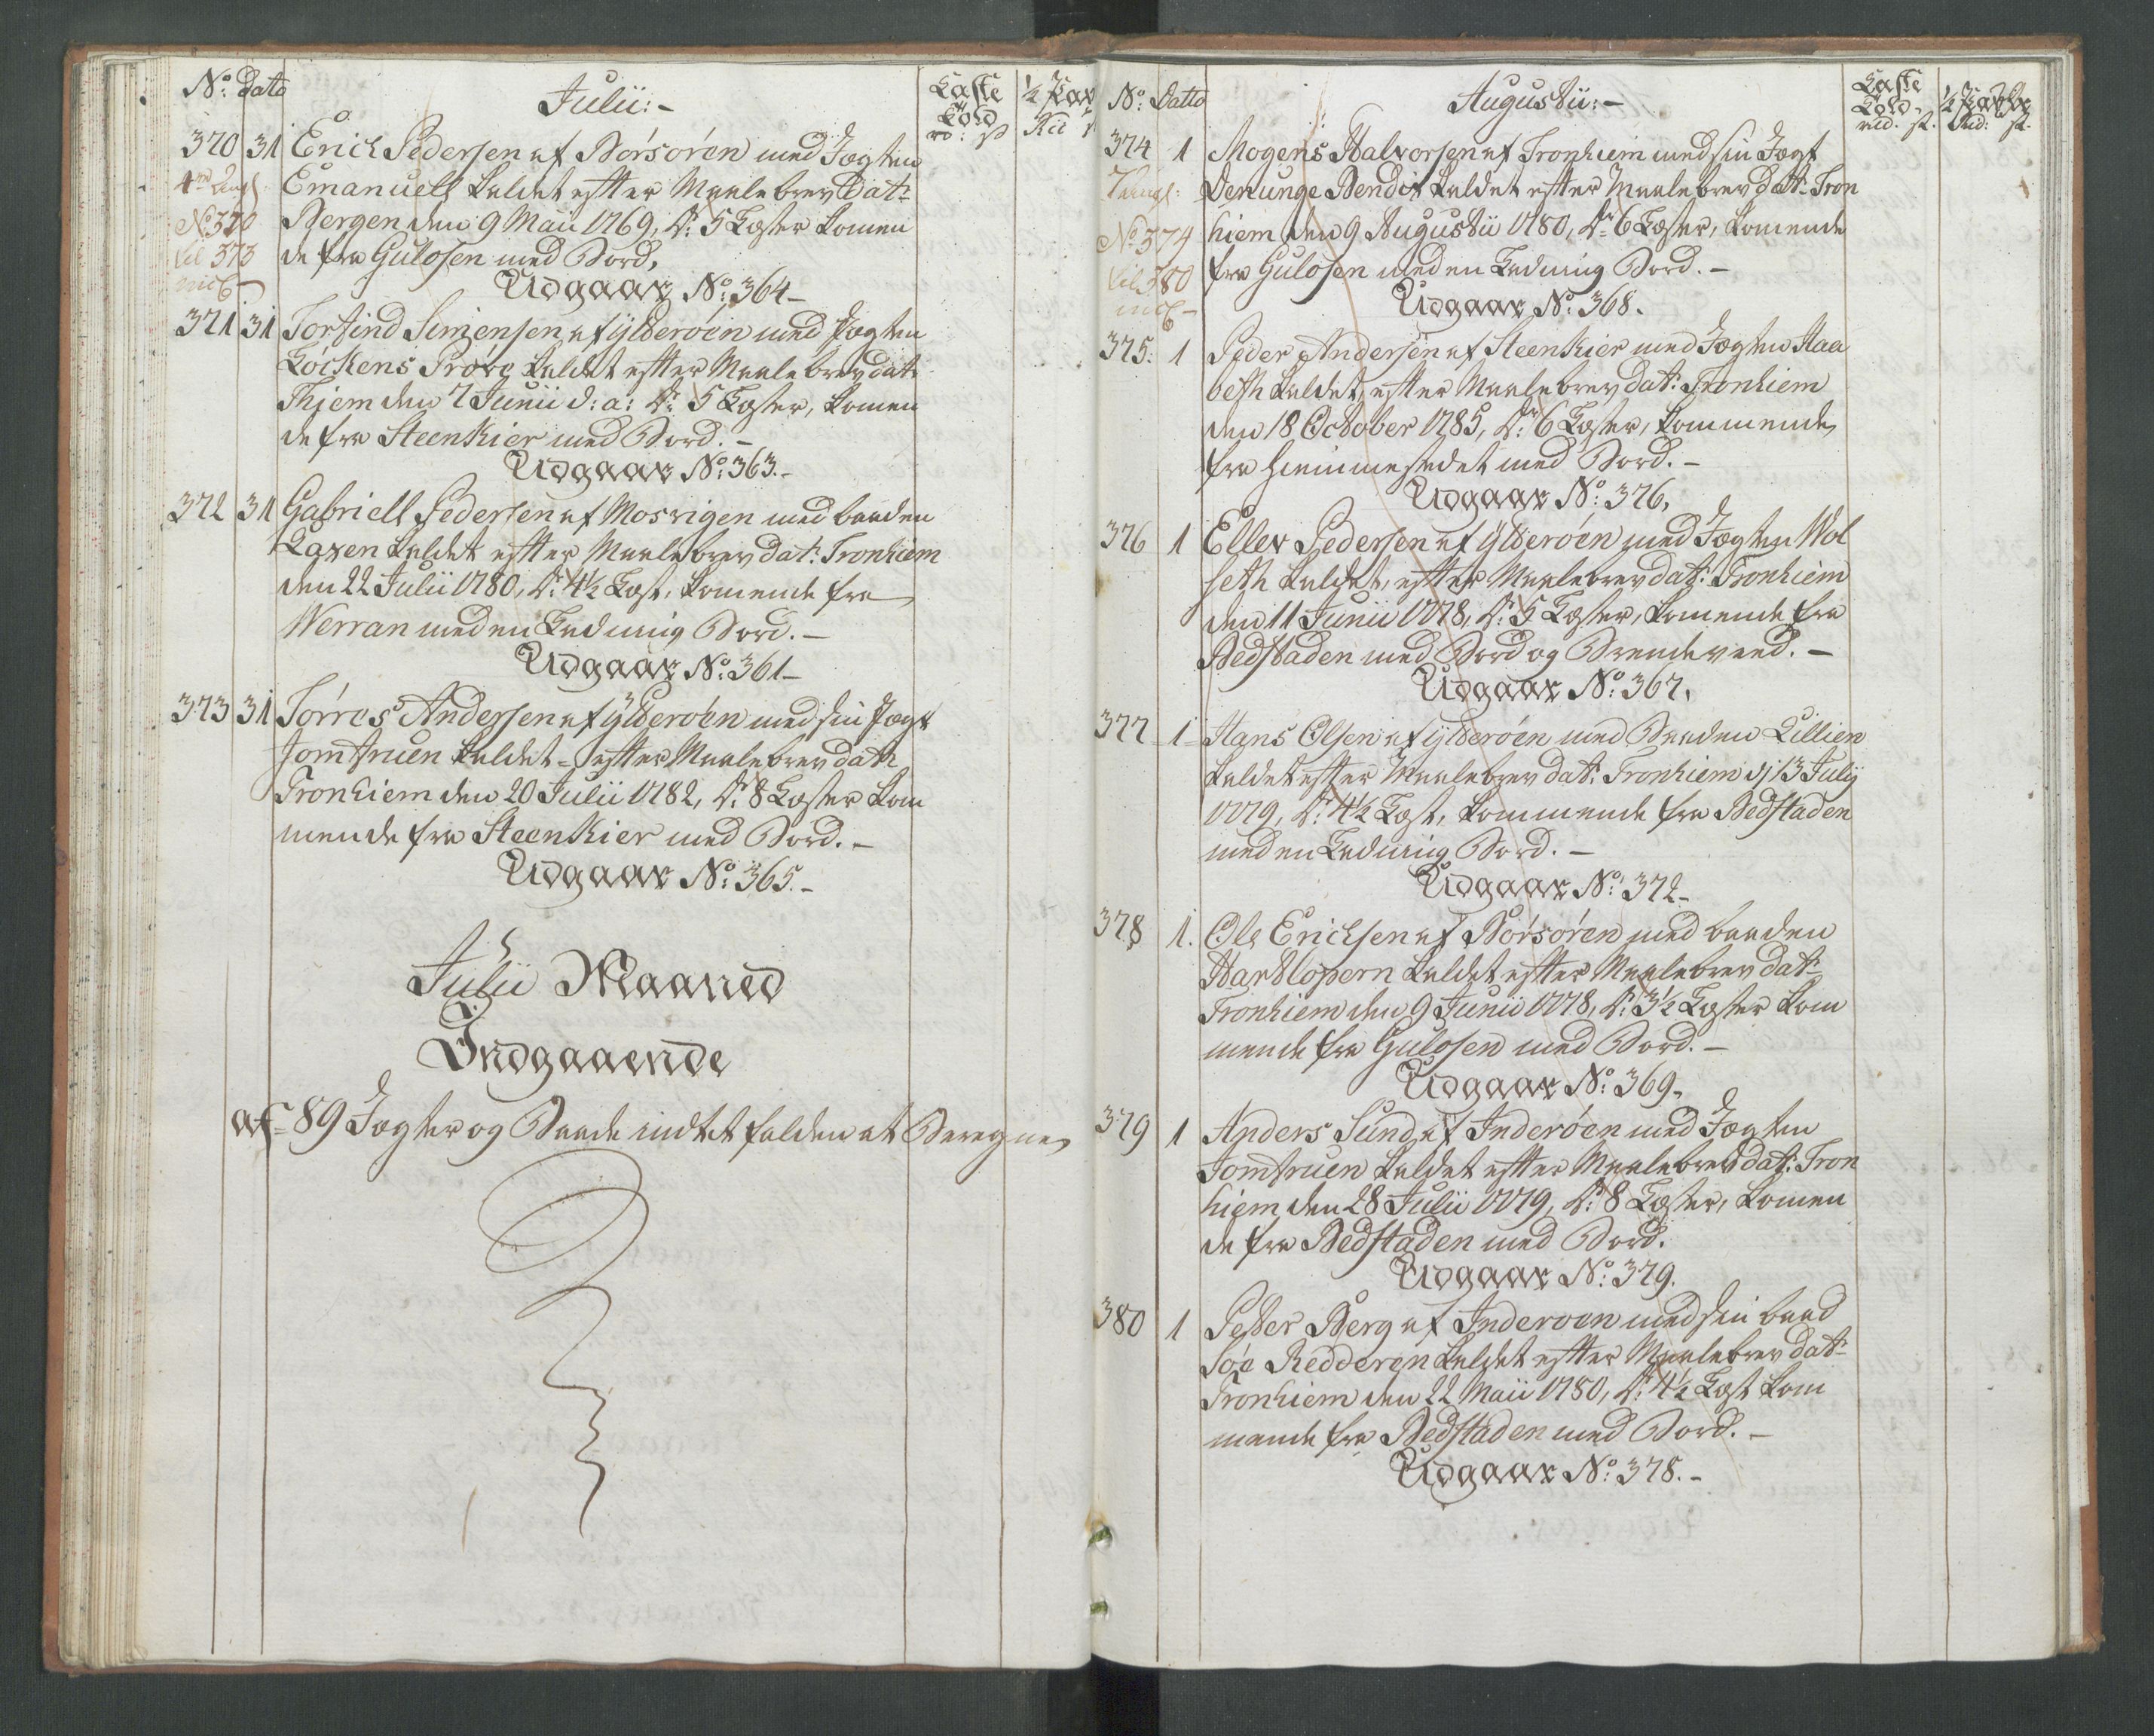 No: Dato
Julii:-
Læste
Told
rd: s
370 31 Erich Pedersen af Børsøren med Jægten
Emanuell kaldet efter Maalebrev dat:
Bergen den 9 Maii 1769, Dr: 5 Læster komen
de fra Gulosen med Bord,
No 370
til 373
incl
Udgaar No: 364-
371 31 Torfind Simensen af Ÿtterøen med Jægten
Løckens Prøve kaldet efter Maalebrev dat:
Thiem den 7 Junii d: a: Dr: 5 Læster, komen
de fra Steenkier med Bord.-
Udgaar No: 363.-
372 31 Gabriell Pedersen af Mosvigen med baaden
Laxen kaldet efter Maalebrev dat: Tronhiem
den 22 Julii 1780, Dr: 4½ Læst, komende fra
Werran med en Ladning Bord.-
Udgaar No: 361-
373 31 Torres Andersen af Ÿtterøen med sin Jægt
Jomfruen kaldet - efter Maalebrev dat:
Tronhiem den 20 Julii 1782, Dr: 8 Læster kom
mende fra Steenkier med Bord.-
Udgaar No: 365.-
Julii Maaned
Indgaaende
af 89 Jægter og Baade indtet falden at Beregnes
No: Datto
Augustii:-
Læste
Told
rd. s.
374 1 Mogens Halvorsen af Tronhiem med sin Jægt
Den unge Bendix kaldet efter Maalebrev dat: Tron
hiem den 9 Augustii 1780, Dr: 6 Læster, komende
fra Gulosen med en Ladning Bord.-
No 374
til 380
incl-
Udgaar No: 368.
375: 1 Peder Andersen af Steenkier med Jægten Haa
beth kaldet, efter Maalebrev dat: Tronhiem
den 18 October 1785, Dr: 6 Læster, kommende
fra Hiemmestedet med Bord.-
Udgaar No: 376,
376 1 Ellev Pedersen af Ÿtterøen med Jægten Wol
seth kaldet, efter Maalebrev dat: Tronhiem
den 11 Junii 1778, Dr: 5 Læster, komende fra
Bedstaden med Bord og Brændeveed.-
Udgaar No: 367,
377 1 Hans Olsen af Ÿtterøen med Baaden Lillien
kaldet efter Maalebrev dat: Tronhiem d: 13 Julÿ
1779, Dr: 4½ Læst, kommende fra Bedstaden
med en Ladning Bord.-
Udgaar No: 372-
378 1. Ole Erichsen af Børsøren med baaden
Hartlopern kaldet efter Maalebrev dat:
Tronhiem den 9 Junii 1778, Dr: 3½ Læster kom
mende fra Gulosen med Bord.-
Udgaar No: 369,
379 1 Anders Sund af Inderøen med Jægten
Jomfruen kaldet efter Maalebrev dat: Tron
hiem den 28 Julii 1779, Dr: 8 Læster, komen
de fra Bedstaden med Bord.
Udgaar No: 379.
380 1 Petter Berg af Inderøen med sin baad
Søe Redderen kaldet efter Maalebrev dat:
Tronhiem den 22 Maii 1780, Dr: 4½ Læst kom
mende fra Bedstaden med Bord.-
Udgaar No: 378.-